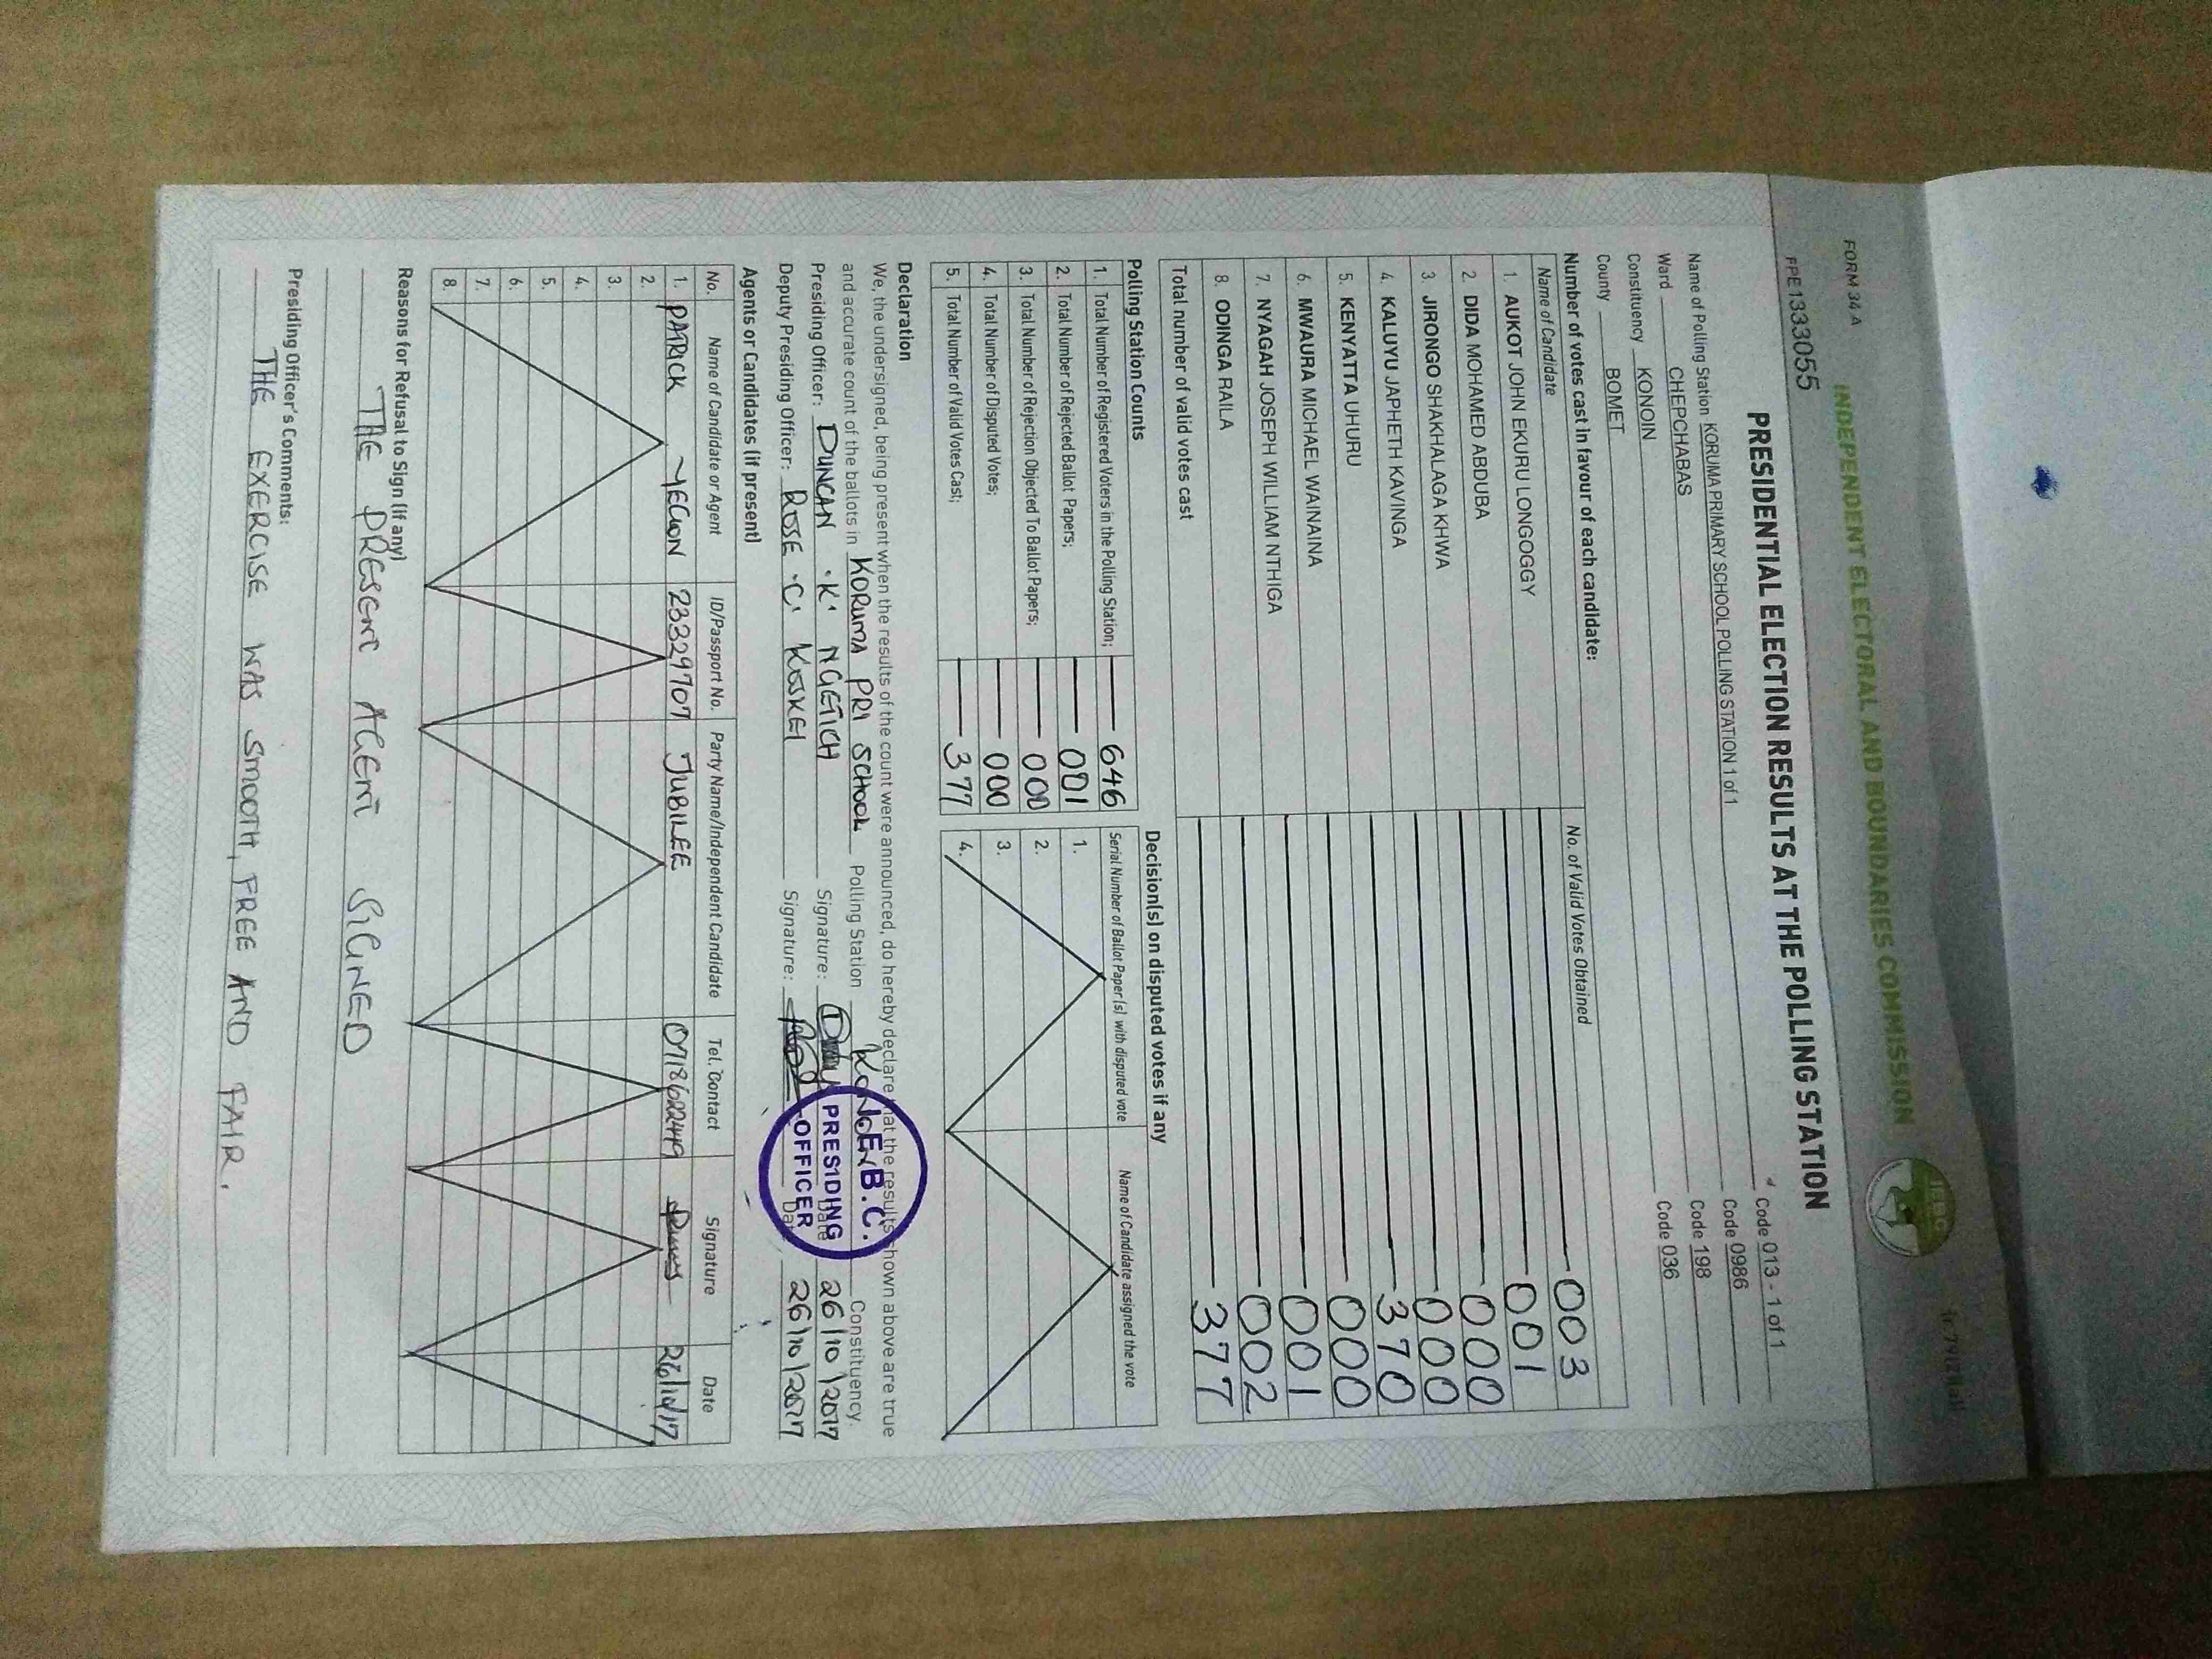 FORM 34 A
INDEPENDENT ELECTORAL AND BOUNDARIES COMMISSION
IEBC
PPE1333055
PRESIDENTIAL ELECTION RESULTS AT THE POLLING STATION
Name of Polling Station KORUMA PRIMARY SCHOOL POLLING STATION 1 of 1 Code 013 - 1 of 1
Ward CHEPCHABAS Code 0986
Constituency KONOIN Code 198
County BOMET Code 036
Number of votes cast in favour of each candidate:
Name of Candidate No. of Valid Votes Obtained
1. AUKOT JOHN EKURU LONGOGGY 003
2. DIDA MOHAMED ABDUBA 001
3. JIRONGO SHAKHALAGA KHWA 000
4. KALUYU JAPHETH KAVINGA 000
5. KENYATTA UHURU 370
6. MWAURA MICHAEL WAINAINA 000
7. NYAGAH JOSEPH WILLIAM NTHIGA 001
8. ODINGA RAILA 002
Total number of valid votes cast 377
Polling Station Counts
1. Total Number of Registered Voters in the Polling Station; 646
2. Total Number of Rejected Ballot Papers; 001
3. Total Number of Rejection Objected To Ballot Papers; 000
4. Total Number of Disputed Votes; 000
5. Total Number of Valid Votes Cast; 377
Decision(s) on disputed votes if any
Serial Number of Ballot Paper(s) with disputed vote Name of Candidate assigned the vote
1.
2.
3.
4.
Declaration
We, the undersigned, being present when the results of the count were announced, do hereby declare that the results shown above are true
and accurate count of the ballots in KORUMA PRI SCHOOL Polling Station KONOIN Constituency.
Presiding Officer: DUNCAN .K. NGETICH Signature: Date 26/10/2017
Deputy Presiding Officer: ROSE .C. KOSKEI Signature: Date 26/10/2017
I.E.B.C.
PRESIDING
OFFICER
Agents or Candidates (if present)
No. Name of Candidate or Agent ID/Passport No. Party Name/Independent Candidate Tel. Contact Signature Date
1. PARICK YEGON 23329707 JUBILEE 0718622419 26/10/17
2.
3.
4.
5.
6.
7.
8.
Reasons for Refusal to Sign (if any)
THE PRESENT AGENT SIGNED
Presiding Officer's Comments:
THE EXERCISE WAS SMOOTH, FREE AND FAIR.